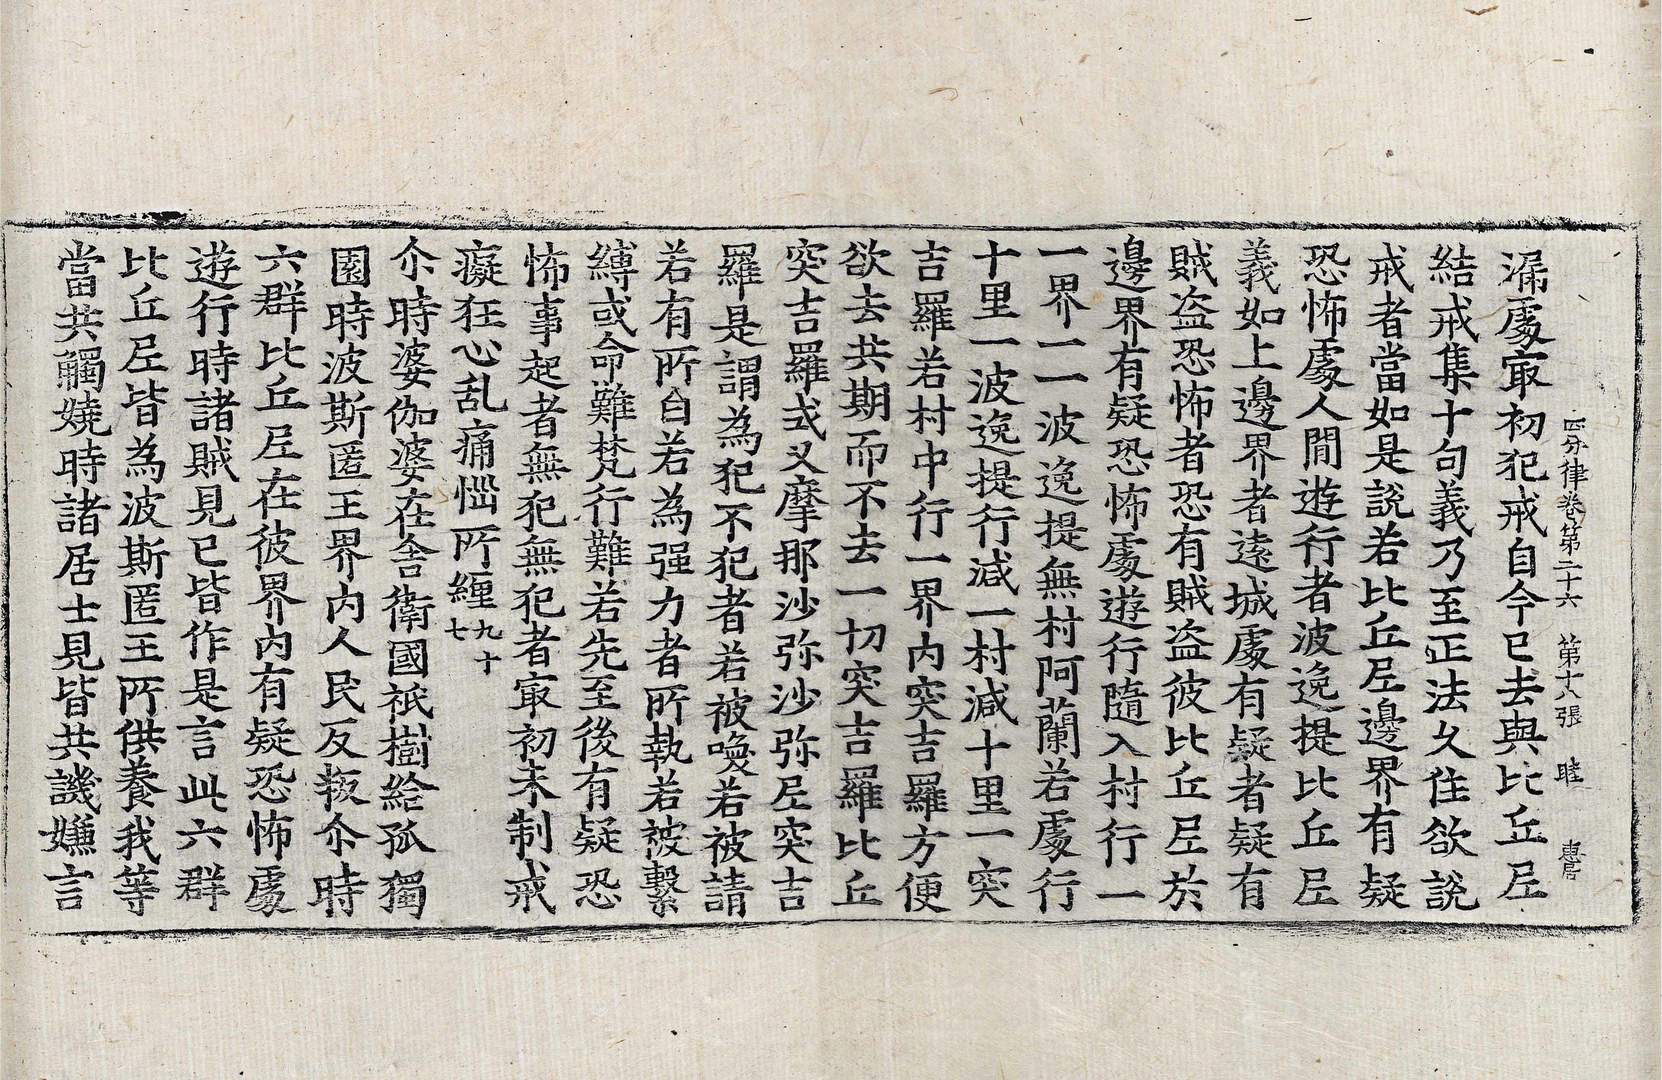 四分律卷第二十六 第十八張 睦 惠居
漏處㝡初犯戒自今已去與比丘尼
結戒集十句義乃至正法久住欲說
戒者當如是說若比丘尼邊界有疑
恐怖處人間遊行者波逸提比丘尼
義如上邊界者遠城處有疑者疑有
賊盜恐怖者恐有賊盜彼比丘尼於
邊界有疑恐怖處遊行隨入村行一
一界一一波逸提無村阿蘭若處行
十里一波逸提行減一村減十里一突
吉羅若村中行一界內突吉羅方便
欲去共期而不去一切突吉羅比丘
突吉羅式叉摩那沙弥沙弥尼突吉
羅是謂為犯不犯者若被喚若被請
若有所白若為强力者所執若被繫
縛或命難梵行難若先至後有疑恐
怖事起者無犯無犯者㝡初未制戒
癡狂心乱痛惱所纏九十七
尒時婆伽婆在舍衛國祇樹給孤獨
園時波斯匿王界內人民反叛尒時
六群比丘尼在彼界內有疑恐怖處
遊行時諸賊見已皆作是言此六群
比丘尼皆為波斯匿王所供養我等
當共觸嬈時諸居士見皆共譏嫌言